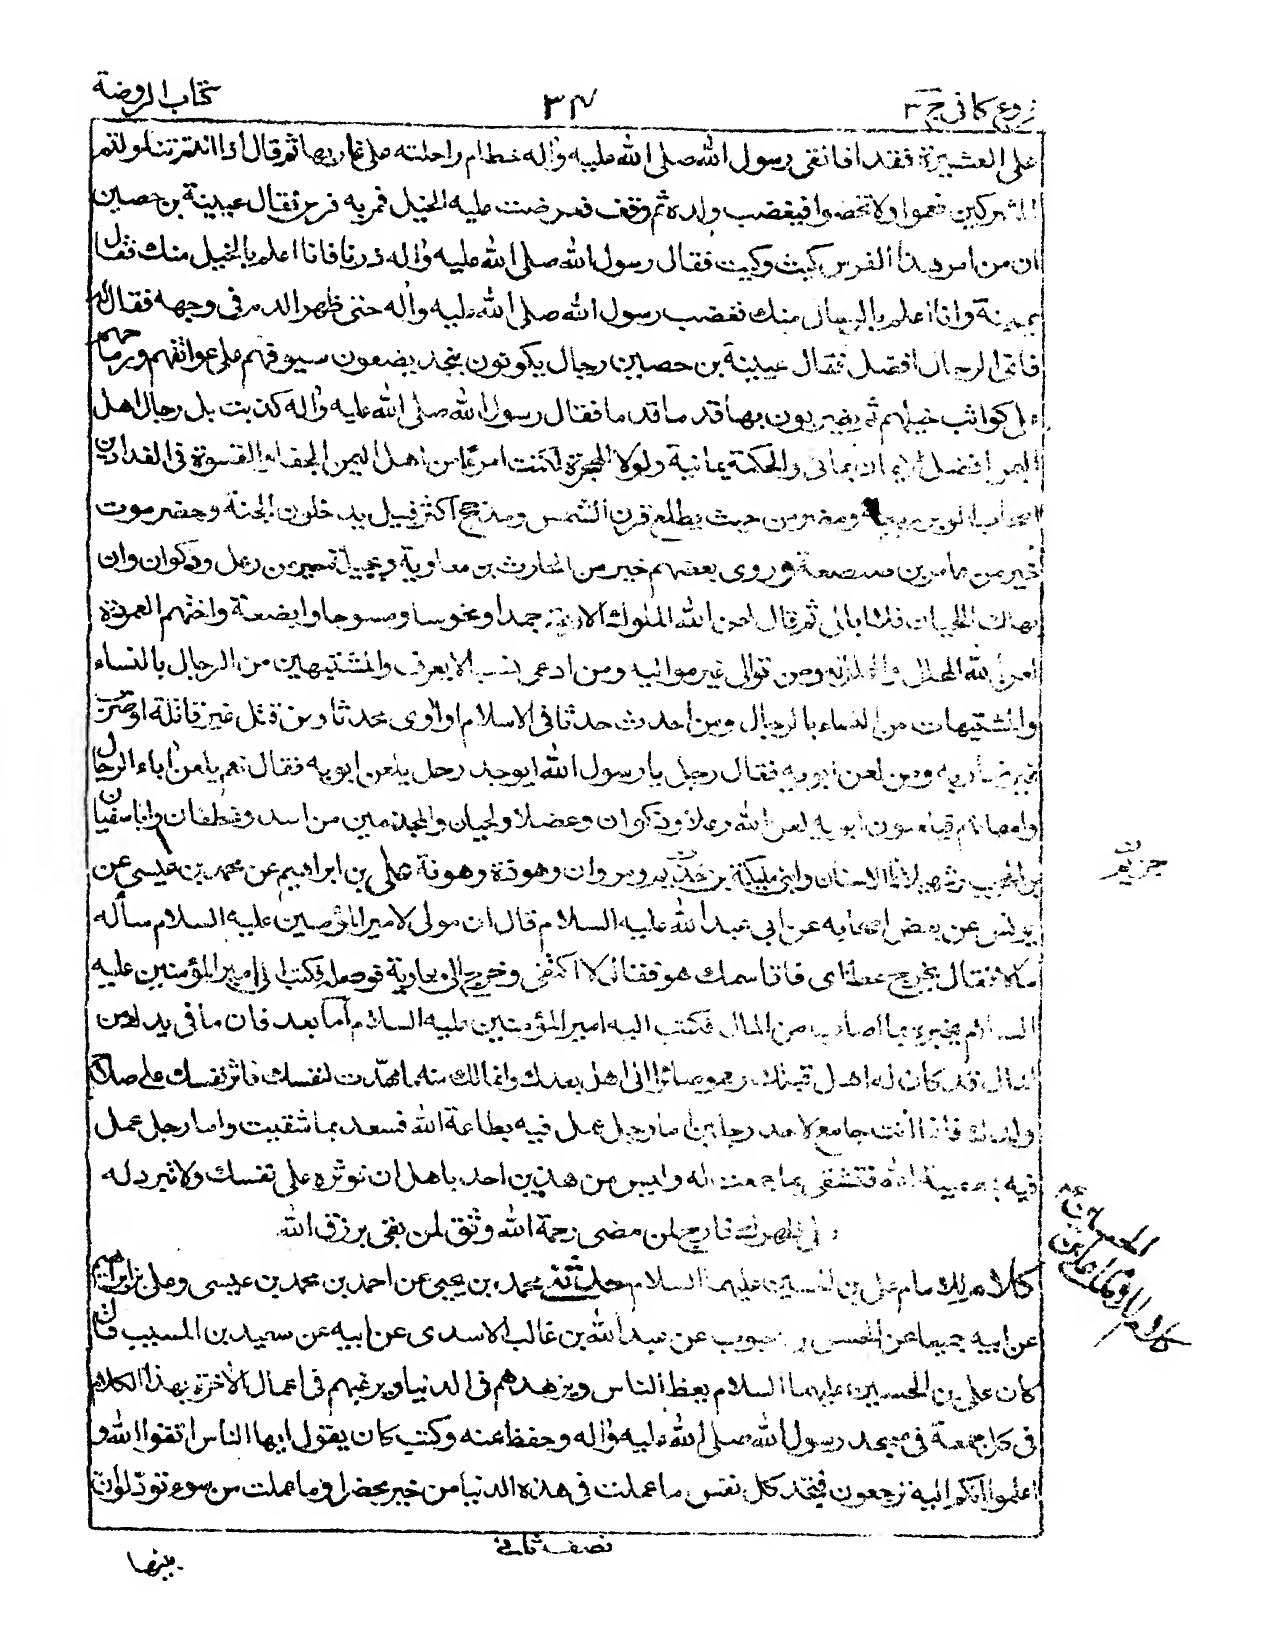 فروع كافى ج ٣
٣٤
كتاب الروضة
على العشيرة فقد افالقى رسول الله صلى الله عليه واله خطام راحلته على غاربها ثم قال اذا انتم تناولتم
المشركين فعموا ولا تخصوا فيغضب ولده ثم وقف فعرضت عليه الخيل فمر به فرس فقال عيينة بن حصين
ان من امر هذا الفرس كيت وكيت فقال رسول الله صلى الله عليه واله ذرنا فانا اعلم بالخيل منك فقال
عيينة وانا اعلم بالرجال منك فغضب رسول الله صلى الله عليه واله حتى ظهر الدم فى وجهه فقال له
فاى الرجال افضل فقال عيينة بن حصين رجال يكونون بنجد يضعون سيوفهم على عواتقهم ورماحهم
على كواثب خيلهم ثم يضربون بها قدما قدما فقال رسول الله صلى الله عليه واله كذبت بل رجال اهل
اليمن افضل الايمان يمانى والحكمة يمانية ولولا الهجرة لكنت امرءا من اهل اليمن الجفاء والقسوة فى الفدادين
اصحاب الوبر ربيعة ومضر من حيث يطلع قرن الشمس ومذحج اكثر قبيل يدخلون الجنة وحضرموت
خير من عامر بن صعصعة وروى بعضهم خير من الحارث بن معاوية وبجيلة خير من رعل وذكوان وان
يهلك لحيان فلا ابالى ثم قال لعن الله الملوك الاربعة جمدا ومخوسا ومشرحا وابضعة واختهم العمردة
لعن الله المحلل والمحلل له ومن توالى غير مواليه ومن ادعى نسبا لا يعرف والمتشبهين من الرجال بالنساء
والمتشبهات من النساء بالرجال ومن احدث حدثا فى الاسلام او اوى محدثا ومن قتل غير قاتله او ضرب
غير ضاربه ومن لعن ابويه فقال رجل يا رسول الله ايوجد رجل يلعن ابويه فقال نعم يلعن اباء الرجال
وامهاتهم فيلعنون ابويه لعن الله رعلا وذكوان وعضلا ولحيان والمجذمين من اسد وغطفان وابا سفيان
بن حرب وشهيلا ذا الاسنان وابنى مليكة بن ومروان وهوذة وهونة على بن ابراهيم عن محمد بن عيسى عن
يونس عن بعض اصحابه عن ابى عبد الله عليه السلام قال ان مولى لامير المؤمنين عليه السلام سأله
مالا فقال يخرج عطائى فاقاسمك هو فقال لا اكتفى وخرج الى معاوية فوصله فكتب الى امير المؤمنين عليه
السلام يخبره بما اصاب من المال فكتب اليه امير المؤمنين عليه السلام اما بعد فان ما فى يدك من
المال قد كان له اهل قبلك وهو صائر الى اهل بعدك وانما لك منه ما مهّدت لنفسك فاثر نفسك على صلاح
ولدك فانما انت جامع لاحد رجلين اما رجل عمل فيه بطاعة الله فسعد بما شقيت واما رجل عمل
فيه بمعصية الله فتشقى بما جمعت له وليس من هذين احد باهل ان توثره على نفسك ولا تبرد له
على ظهرك فارج لمن مضى رحمة الله وثق لمن بقى برزق الله
كلام للامام على بن الحسين عليهما السلام حدثنى محمد بن يحيى عن احمد بن محمد بن عيسى وعلى بن ابراهيم
عن ابيه جميعا عن الحسن بن محبوب عن عبد الله بن غالب الاسدى عن ابيه عن سعيد بن المسيب قال
كان على بن الحسين عليهما السلام يعظ الناس ويزهدهم فى الدنيا ويرغبهم فى اعمال الاخرة بهذا الكلام
فى كل جمعة فى مسجد رسول الله صلى الله عليه واله وحفظ عنه وكتب كان يقول ايها الناس اتقوا الله و
اعلموا انكم اليه ترجعون فتجد كل نفس ما عملت فى هذه الدنيا من خير محضرا وما عملت من سوء تودّ لو ان
نصف ثانى
بينها